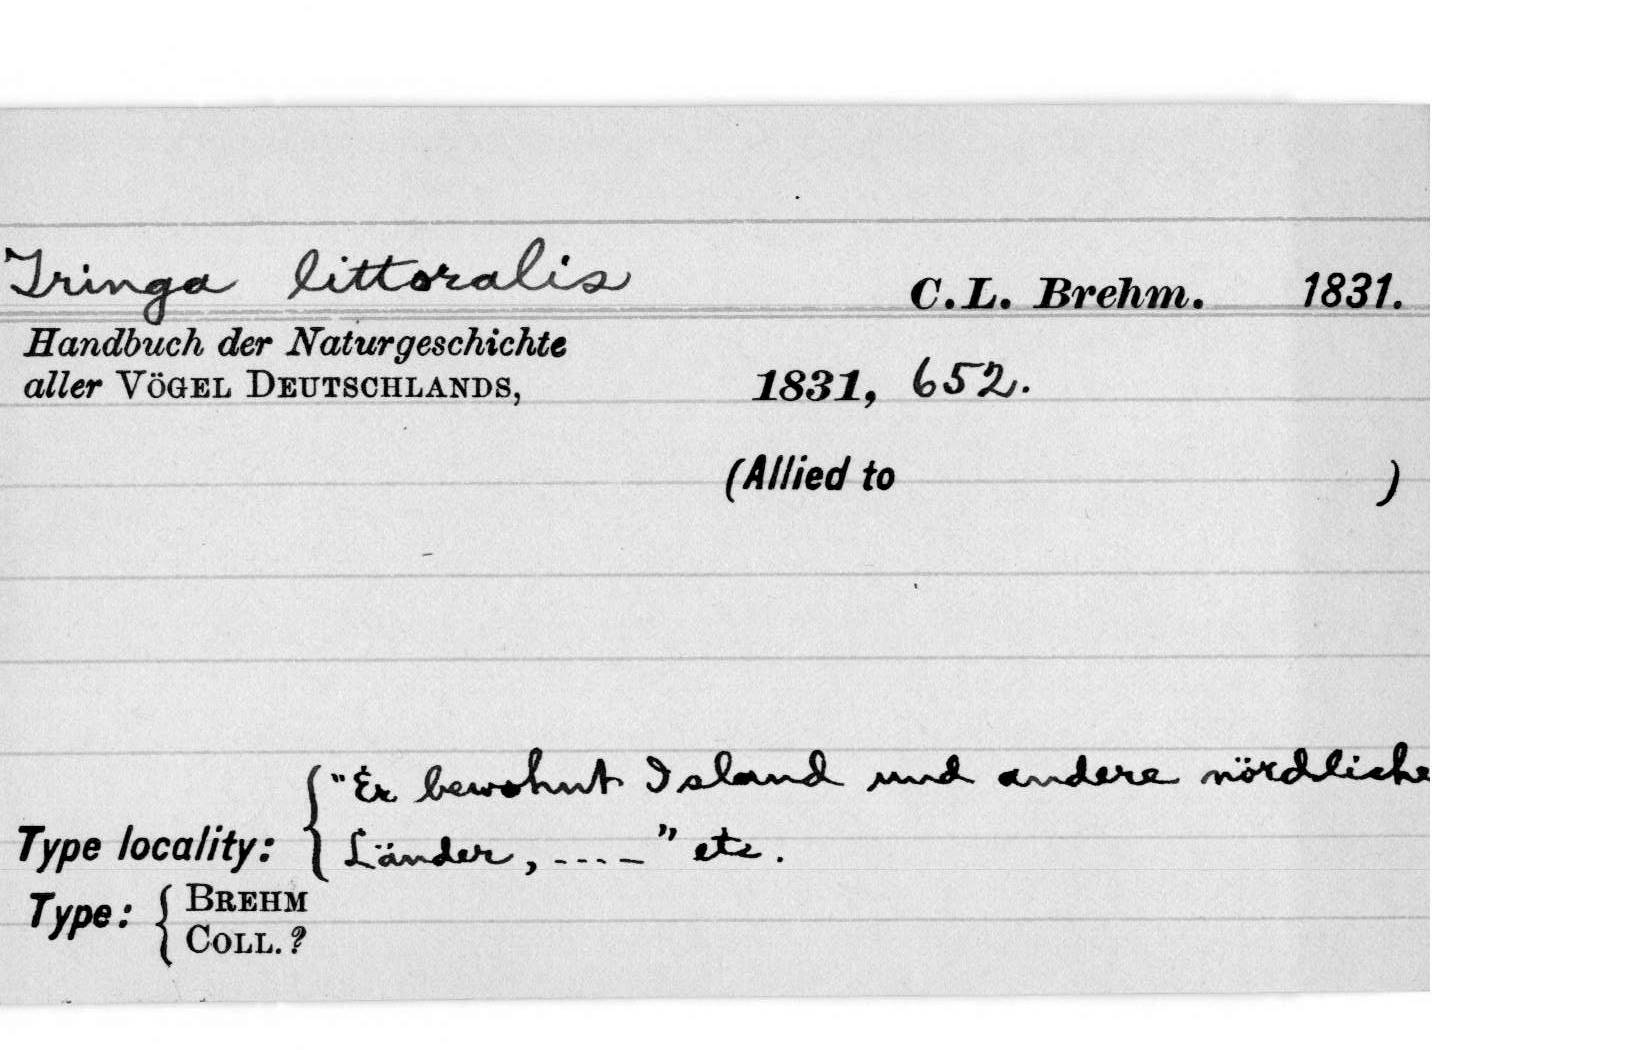 Tringa littoralis C.L. Brehm. 1831.
Handbuch der Naturgeschichte
aller VÖGEL DEUTSCHLANDS, 1831, 652.
(Allied to )
"Er bewohnt Island und andere nördliche
Type locality: { Länder, ....–" etc.
Type: { BREHM
COLL.?